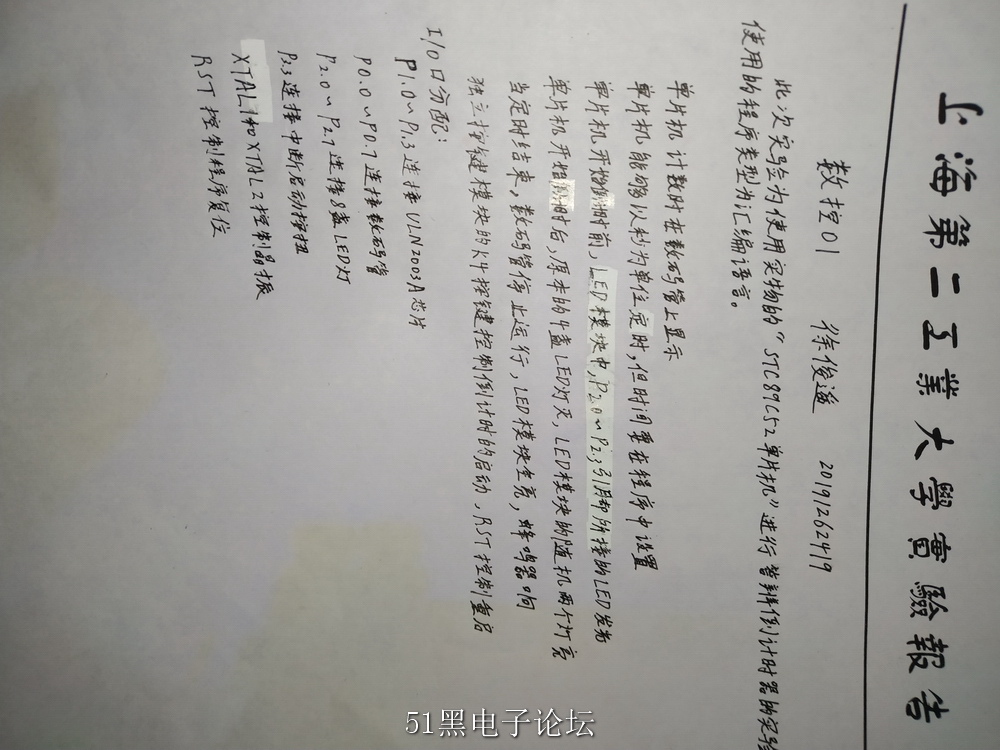 上海第二工業大學實驗報告
数控01 徐俊逸 20191262419
此次实验为使用实物的“STC89C52单片机”进行 倒计时器的实验
使用的程序类型为汇编语言。
单片机计数时在数码管上显示
单片机能够以秒为单位定时,但时间要在程序中设置
单片机开始倒计时前,LED模块中,P2.0~P2.3引脚所接的LED发光
单片机开始倒计时后,原本的4盏LED灯灭,LED模块的随机两个灯亮
当定时结束,数码管停止运行,LED模块全亮,蜂鸣器响
独立按键模块的K4按键控制倒计时的启动,RST控制重启
I/O口分配:
P1.0~P1.3连接ULN2003A芯片
P0.0~P0.7连接数码管
P2.0~P2.7连接8盏LED灯
P3.3连接中断启动按扭
XTAL1和XTAL2控制晶振
RST控制程序复位
51黑电子论坛